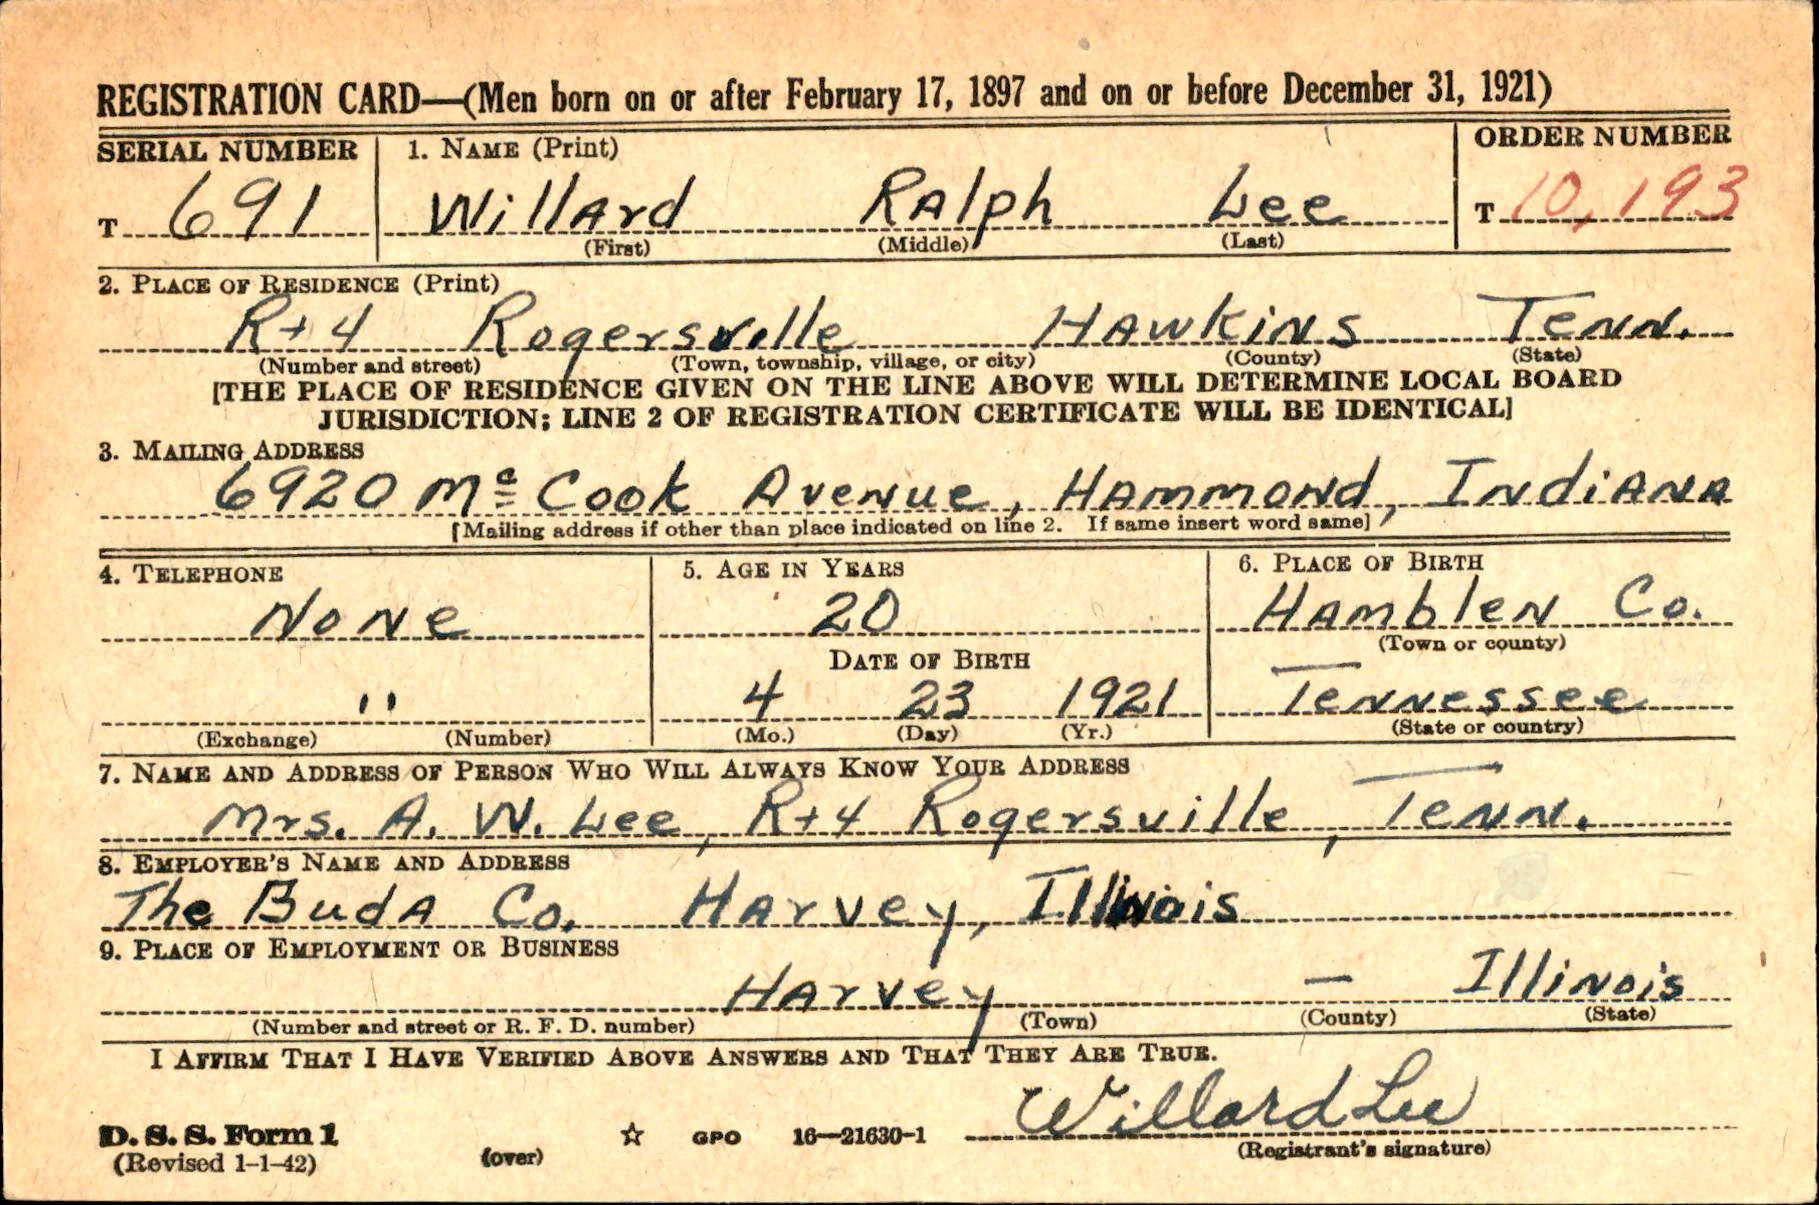 REGISTRATION CARD—(Men born on or after February 17, 1897 and on or before December 31, 1921)
SERIAL NUMBER 1. NAME (Print) ORDER NUMBER
T 691 Willard Ralph Lee T 10,193
(First) (Middle) (Last)
2. PLACE OF RESIDENCE (Print)
Rt 4 Rogersville Hawkins Tenn.
(Number and street) (Town, township, village, or city) (County) (State)
[THE PLACE OF RESIDENCE GIVEN ON THE LINE ABOVE WILL DETERMINE LOCAL BOARD
JURISDICTION; LINE 2 OF REGISTRATION CERTIFICATE WILL BE IDENTICAL]
3. MAILING ADDRESS
6920 Mc Cook Avenue, Hammond, Indiana
[Mailing address if other than place indicated on line 2. If same insert word same]
4. TELEPHONE 5. AGE IN YEARS 6. PLACE OF BIRTH
None 20 Hamblen Co.
(Town or county)
DATE OF BIRTH
" 4 23 1921 Tennessee
(Exchange) (Number) (Mo.) (Day) (Yr.) (State or country)
7. NAME AND ADDRESS OF PERSON WHO WILL ALWAYS KNOW YOUR ADDRESS
Mrs. A. W. Lee, Rt 4 Rogersville, Tenn.
8. EMPLOYER'S NAME AND ADDRESS
The Buda Co. Harvey, Illinois
9. PLACE OF EMPLOYMENT OR BUSINESS
Harvey — Illinois
(Number and street or R. F. D. number) (Town) (County) (State)
I AFFIRM THAT I HAVE VERIFIED ABOVE ANSWERS AND THAT THEY ARE TRUE.
Willard Lee
D. S. S. Form 1 (over) ☆ GPO 16—21630-1
(Revised 1-1-42) (Registrant's signature)